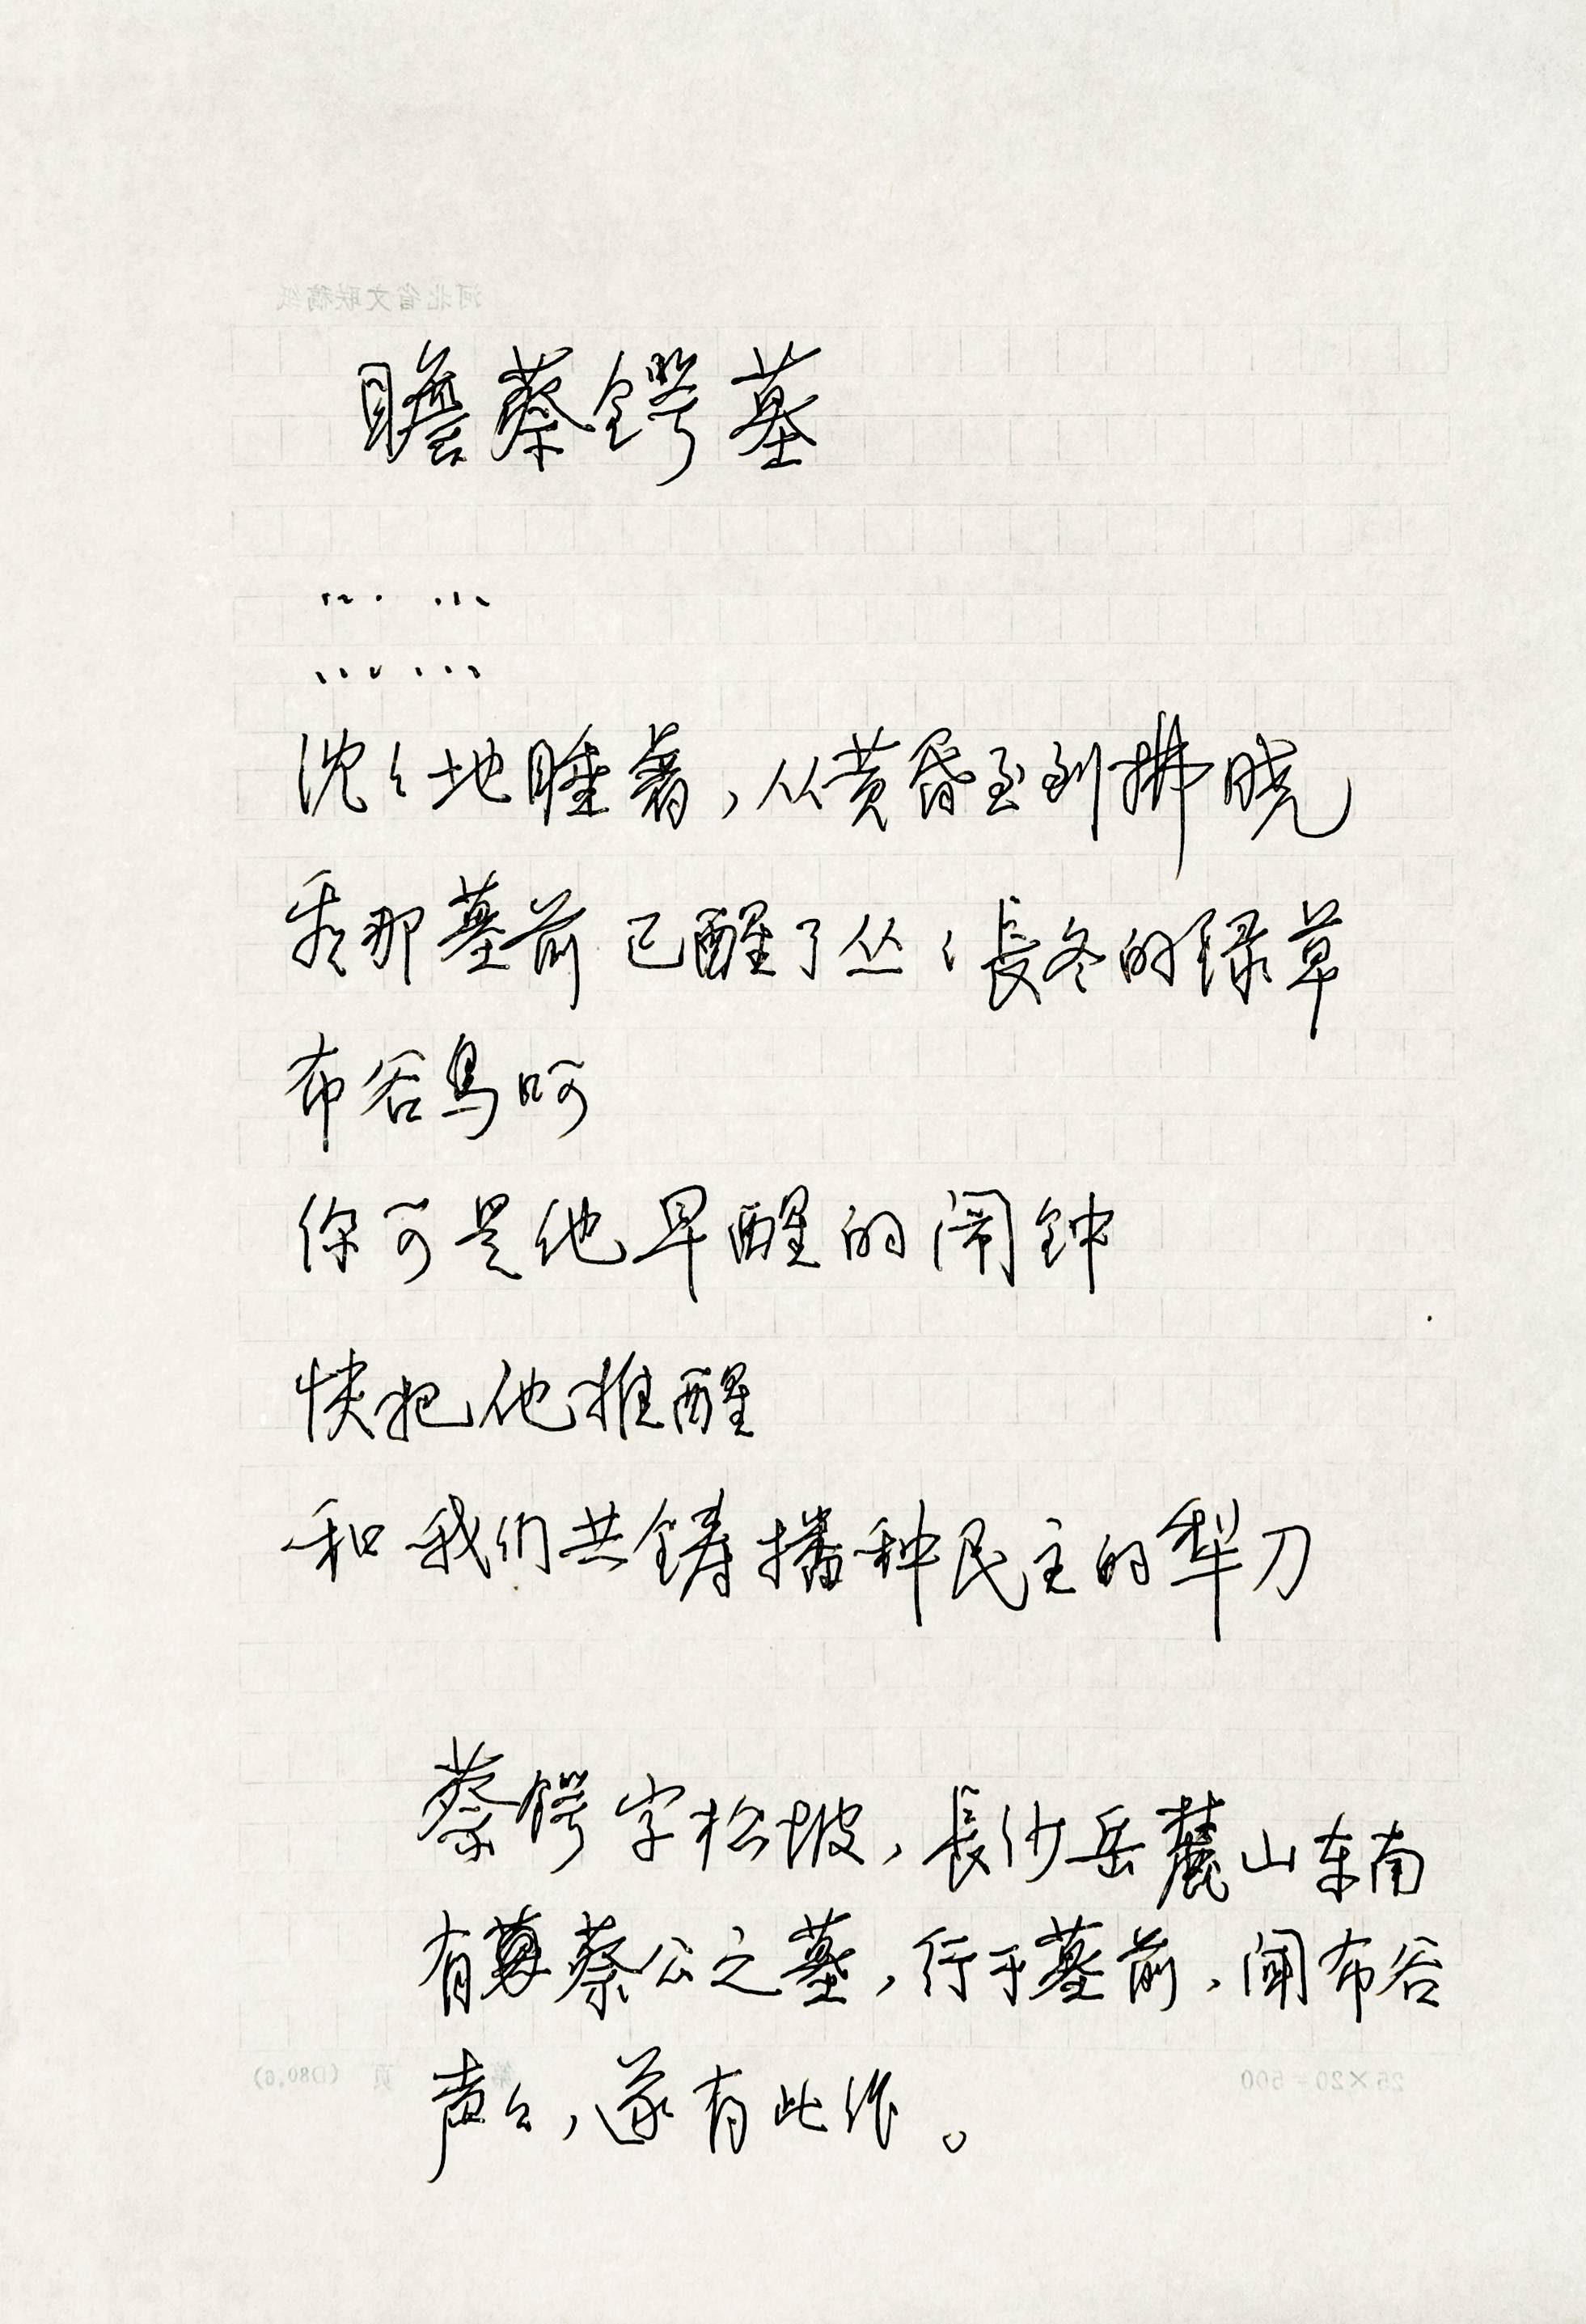 河北省文联稿纸
瞻蔡锷墓
… …
……
沈々地睡着，从黄昏至到拂晓
那墓前已醒了丛々長冬的绿草
布谷鸟呵
你可是他早醒的闹钟
快把他推醒
和我们共铸播种民主的犁刀
蔡锷字松坡，長沙岳麓山东南
有蔡公之墓，行于墓前，闻布谷
声々，遂有此作。
25×20=500 第 页 (D80.6)